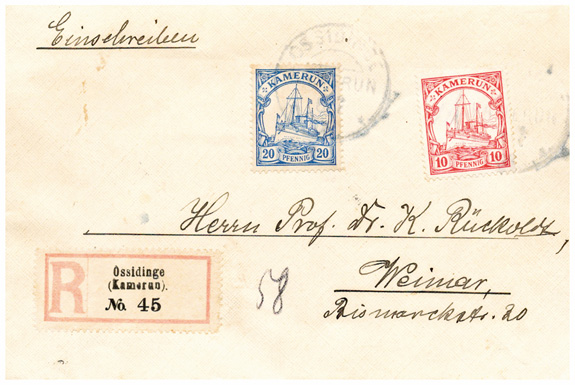 Einschreiben
OSSIDINGE
KAMERUN
20 PFENNIG 20
KAMERUN
10 PFENNIG 10
Herrn Prof. Dr. K. Rückoldt,
Weimar,
Bismarckstr. 20
R
Ossidinge
(Kamerun).
No. 45
58